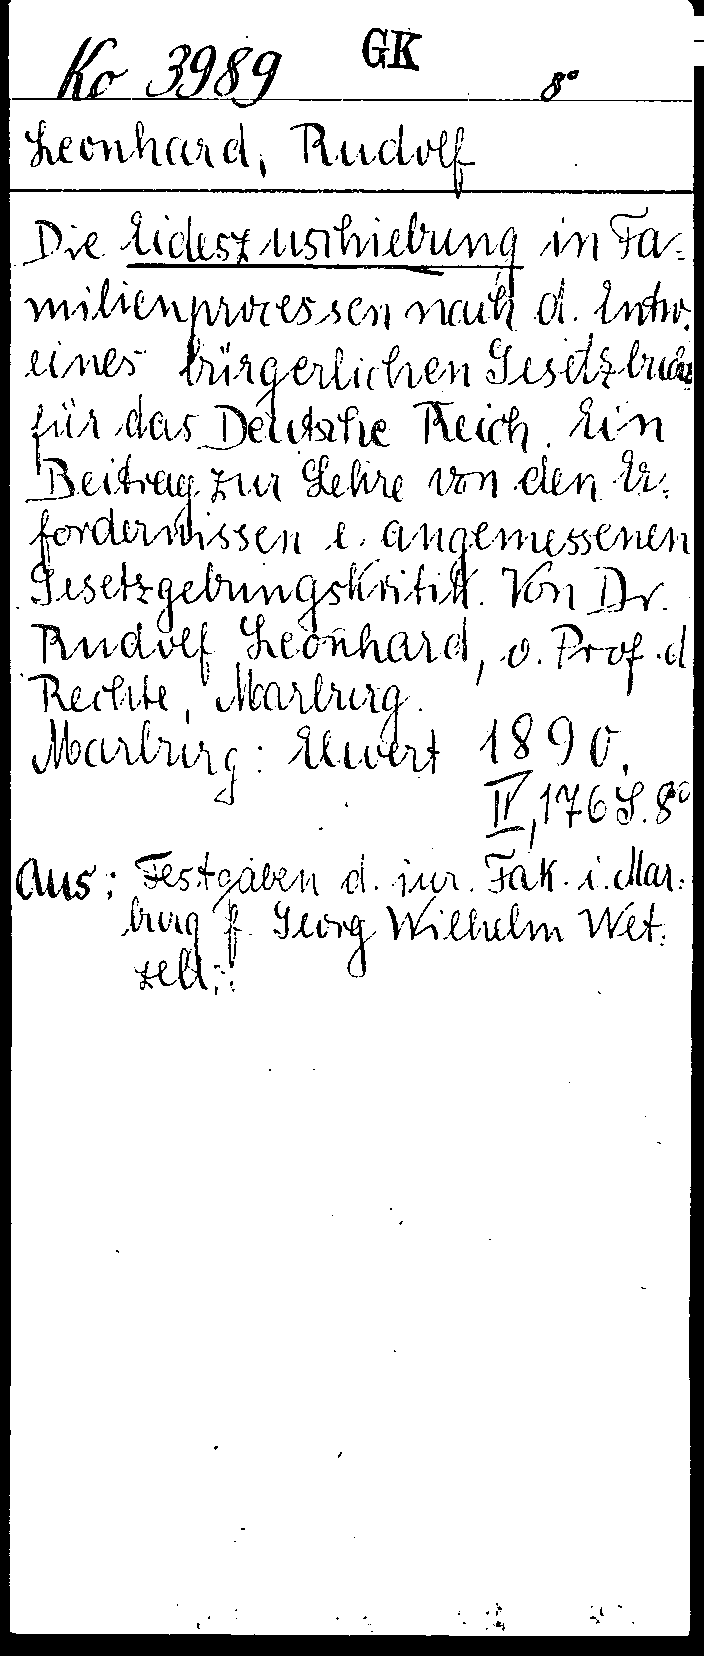 Ko 3989 GK 8°
Leonhard, Rudolf
Die Eideszuschiebung in Fa-
milienprocessen nach d. Entw.
eines bürgerlichen Gesetzbuchs
für das Deutsche Reich. Ein
Beitrag zur Lehre von den Er-
fordernissen e. angemessenen
Gesetzgebungskritik. Von Dr.
Rudolf Leonhard, o. Prof. d
Rechte, Marburg.
Marburg: Elwert 1890.
IV, 176 S. 8°
Aus: Festgaben d. jur. Fak. i. Mar-
burg f. Georg Wilhelm Wet-
zell.